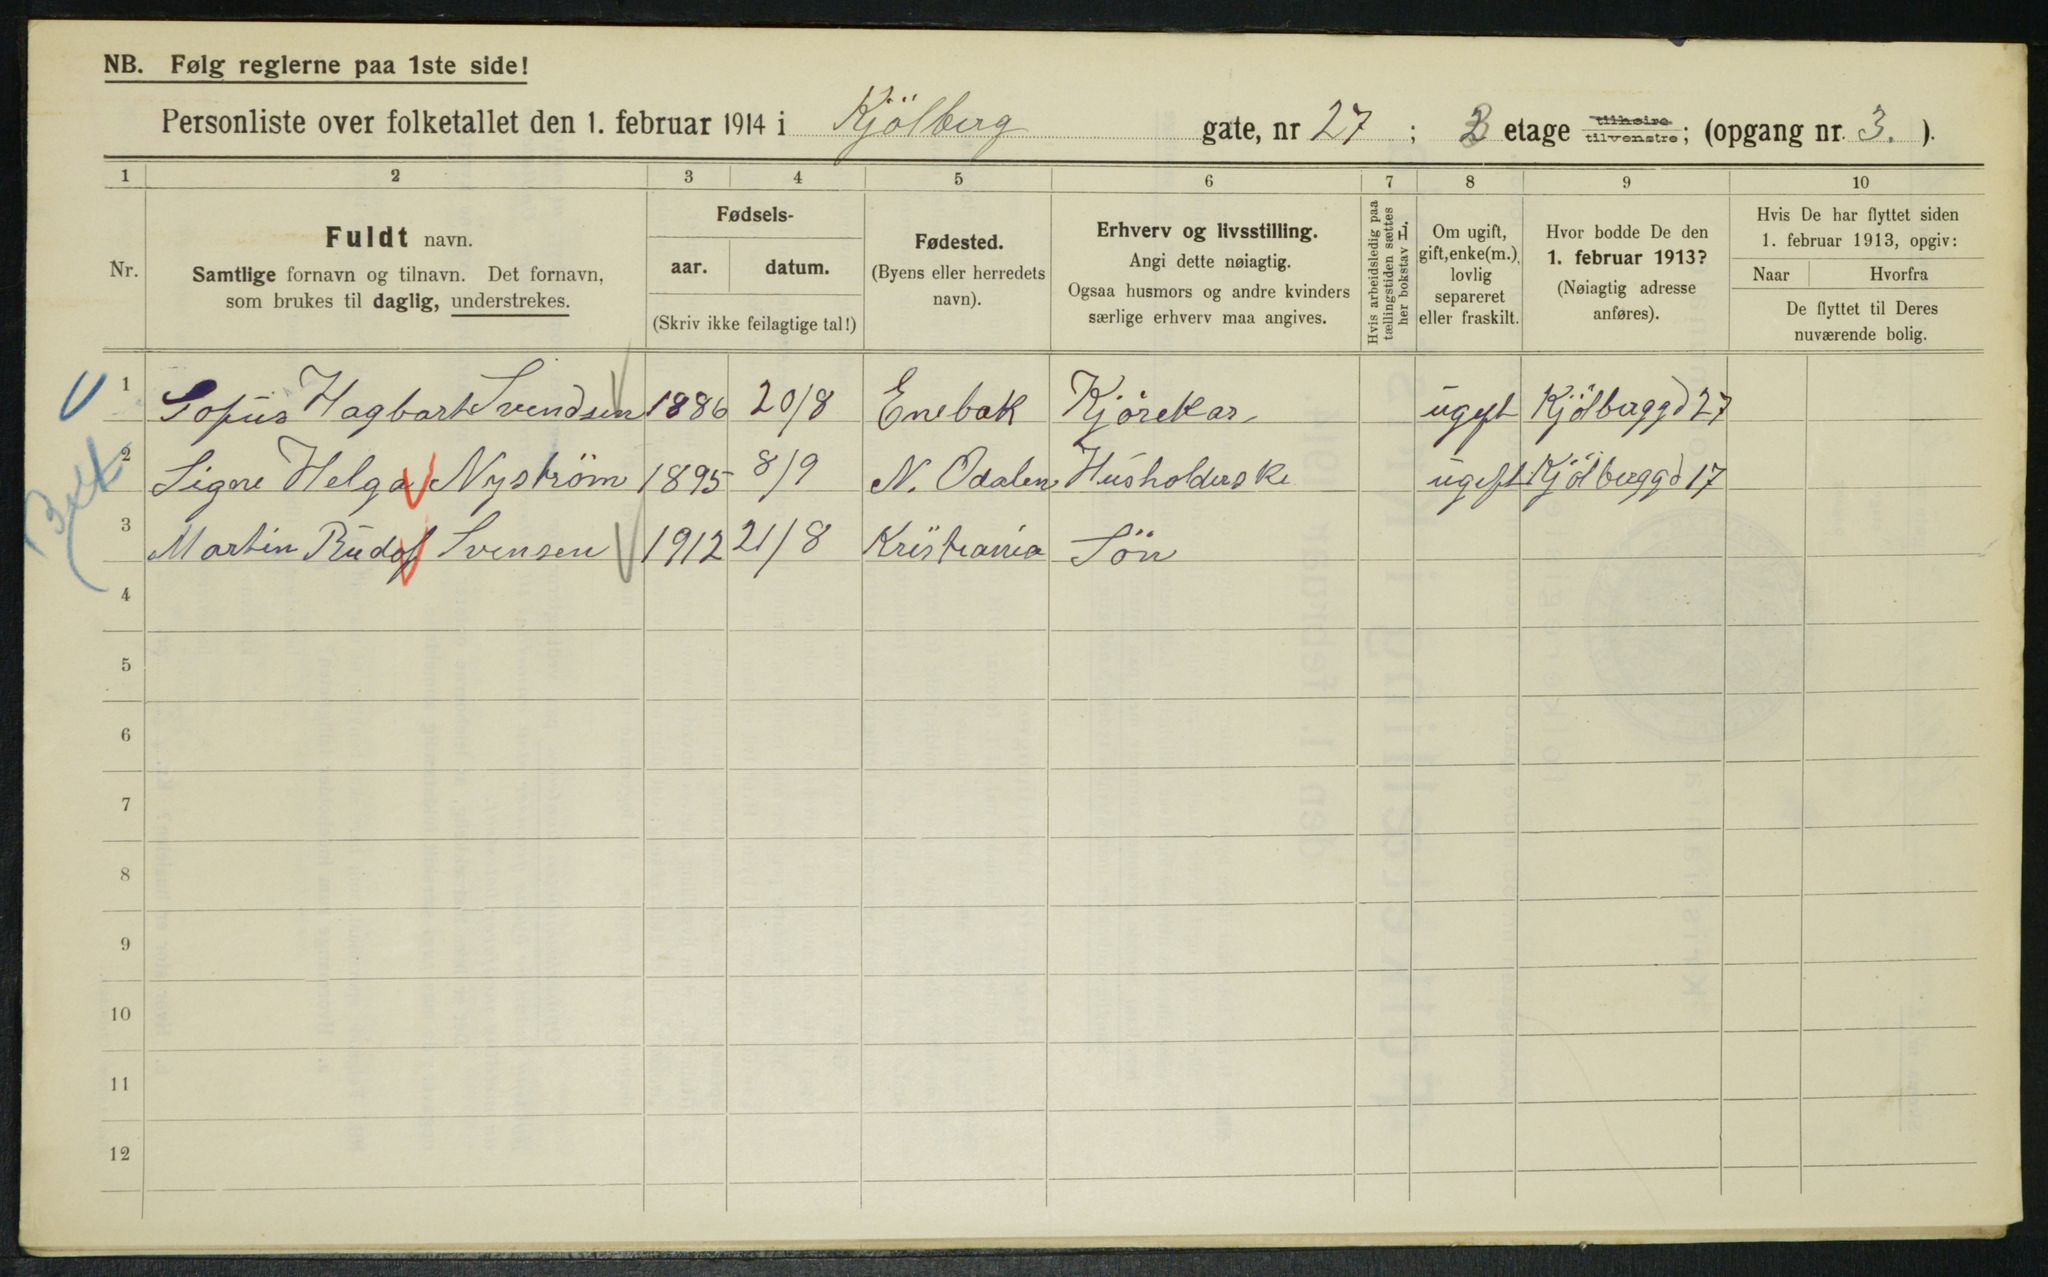 NB. Følg reglerne paa 1ste side!
Personliste over folketallet den 1. februar 1914 i Kjölberg gate, nr 27 ; 2 etage tilhøire tilvenstre; (opgang nr. 3. ).
1 2 3 4 5 6 7 8 9 10
Nr.
Fuldt navn.
Samtlige fornavn og tilnavn. Det fornavn,
som brukes til daglig, understrekes.
Fødsels-
aar. datum.
(Skriv ikke feilagtige tal!)
Fødested.
(Byens eller herredets
navn).
Erhverv og livsstilling.
Angi dette nøiagtig.
Ogsaa husmors og andre kvinders
særlige erhverv maa angives.
Hvis arbeidsledig paa
tællingstiden sættes
her bokstav L.
Om ugift,
gift, enke(m.),
lovlig
separeret
eller fraskilt.
Hvor bodde De den
1. februar 1913?
(Nøiagtig adresse
anføres).
Hvis De har flyttet siden
1. februar 1913, opgiv:
Naar Hvorfra
De flyttet til Deres
nuværende bolig.
1 Sofus Hagbart Svendsen 1886 20/8 Enebak Kjörekar ugift Kjölberggd 27
2 Signe Helga Nyström 1895 8/9 N. Odalen Husholderske ugift Kjölberggd 17
3 Martin Rudof Svensen 1912 21/8 Kristiania Sön
4
5
6
7
8
9
10
11
12